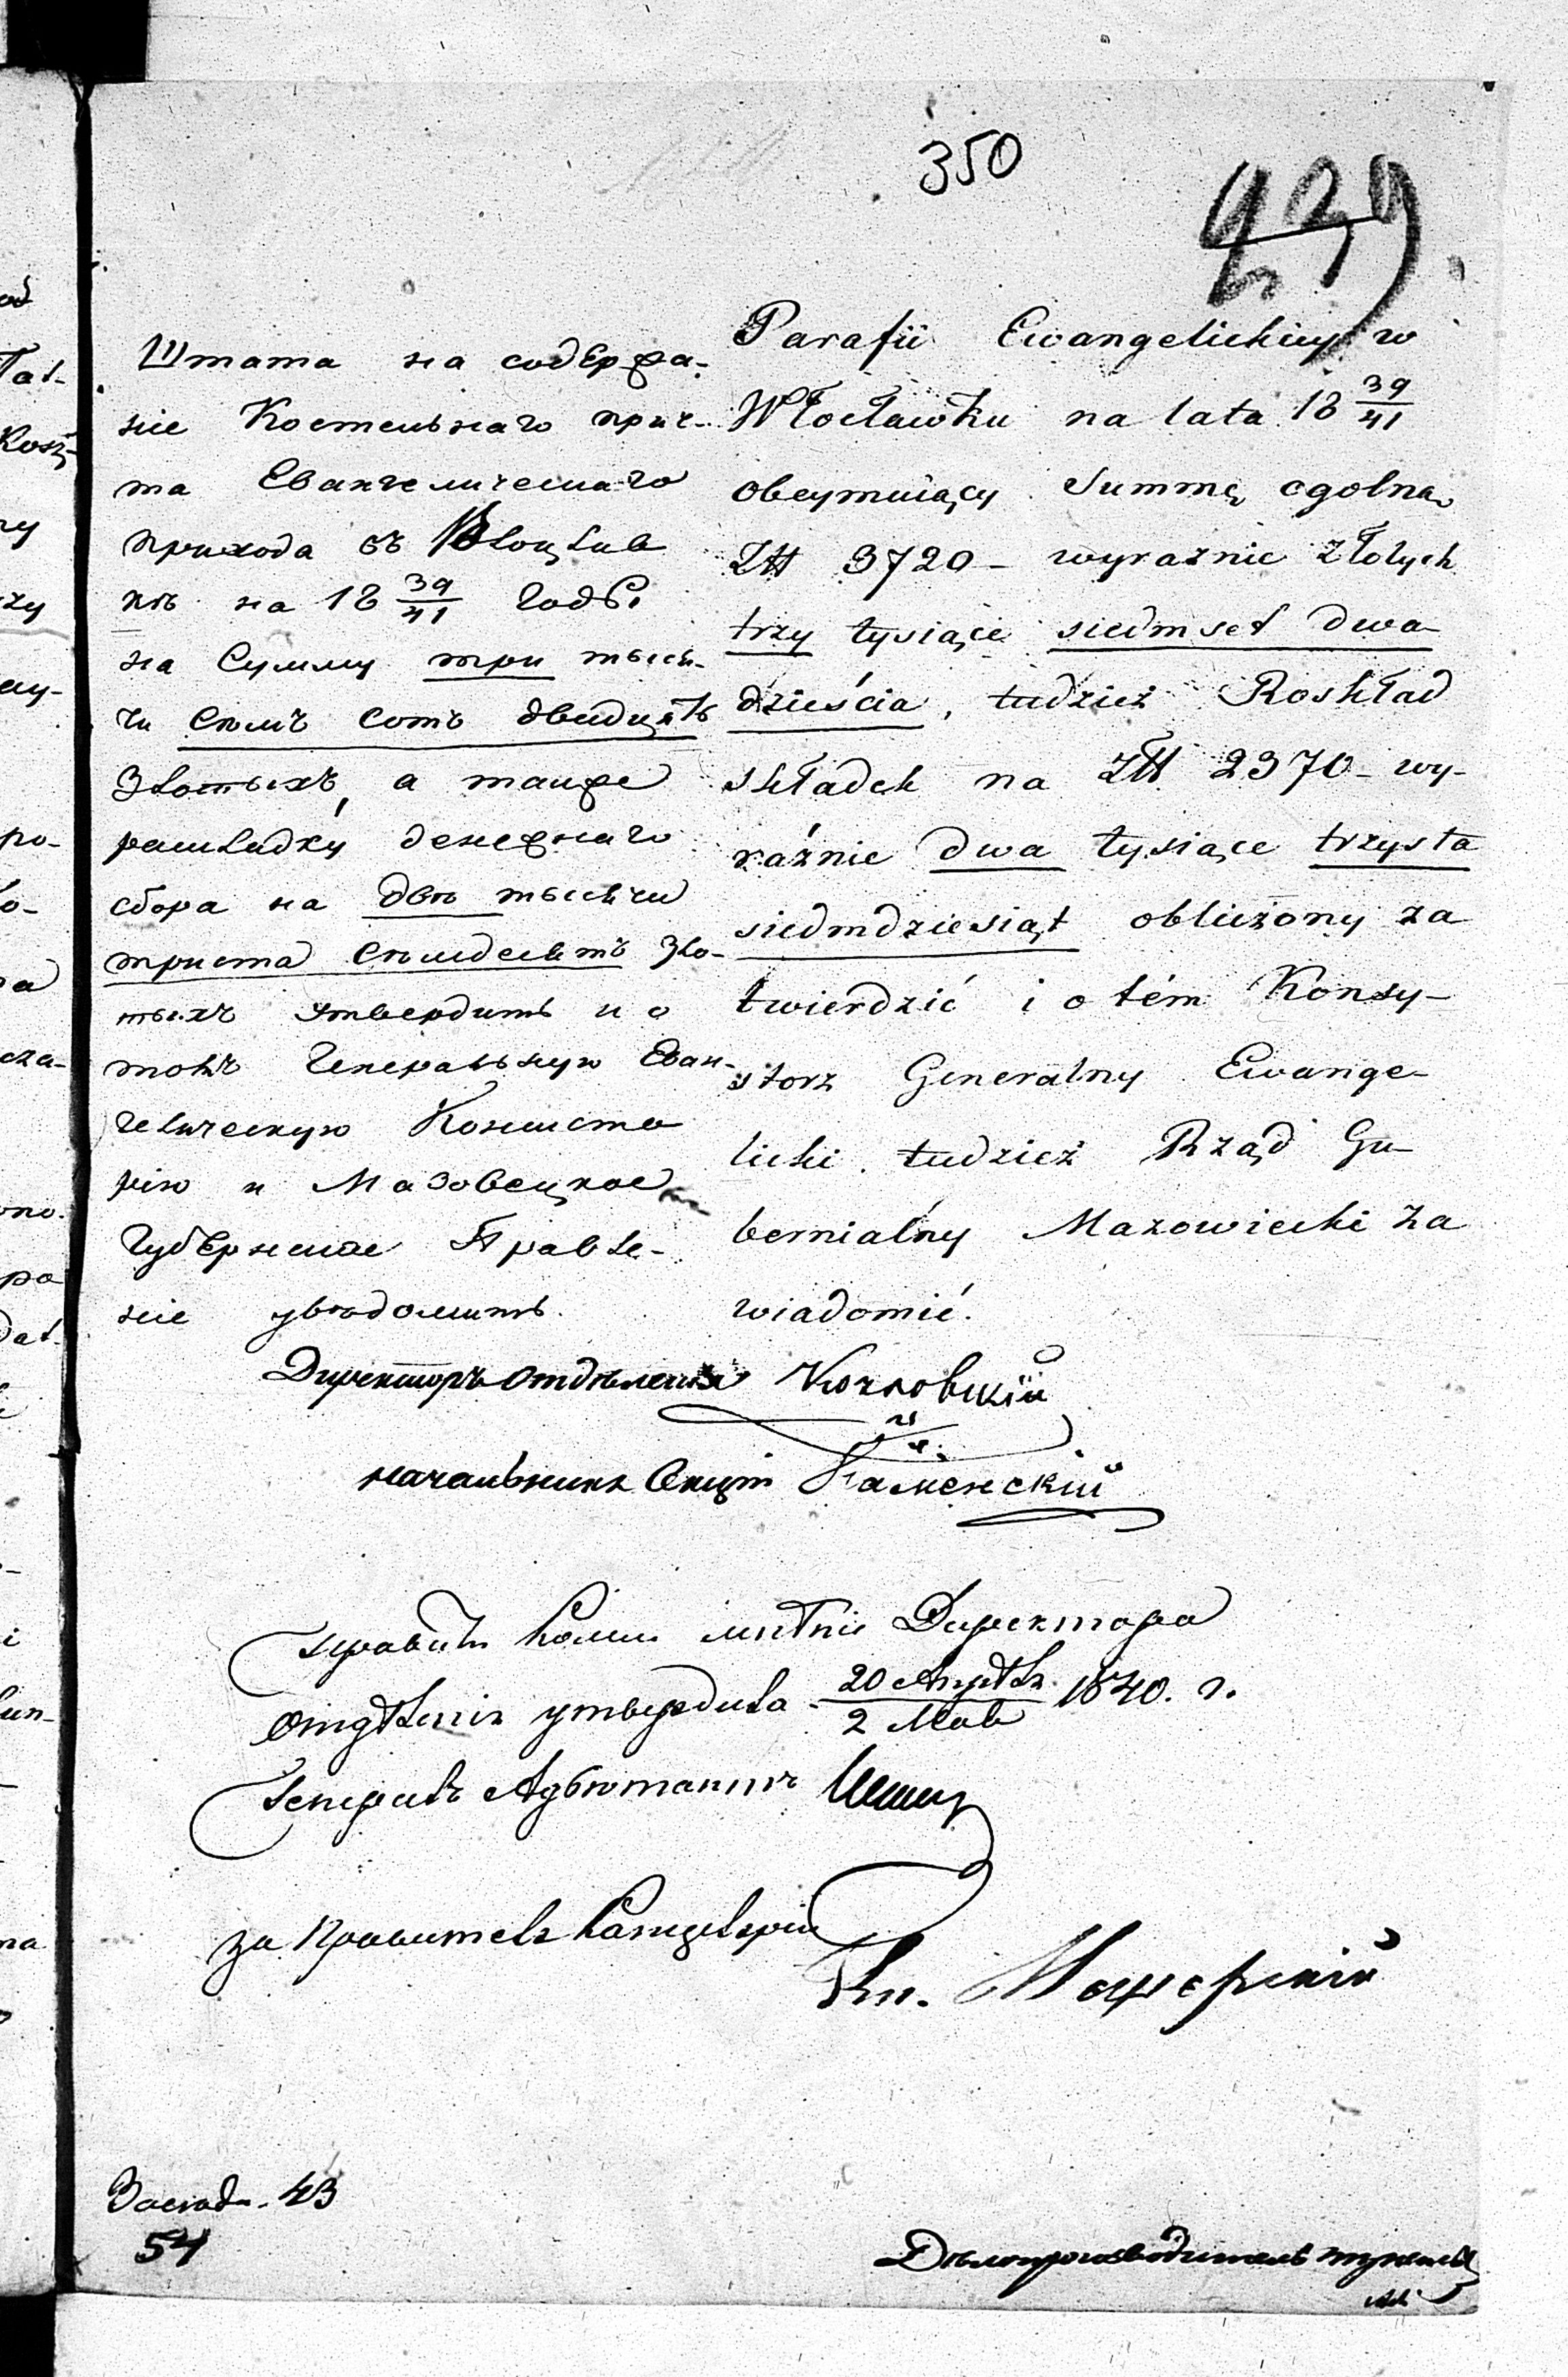 350
439.
Штата на содержа-
ніе Костельнаго прич-
та Евангелическаго
прихода въ Влоцлав
кѣ на 18 39/41 годы
на Сумму три тыся-
чи семь сотъ двадцать
Злотыхъ, а также
раскладку денежнаго
сбора на двѣ тысячи
триста семдесятъ Зло-
тыхъ утвердить и о
томъ Генеральную Еван-
гелическую Консисто
рію и Мазовецкое
Губернское Правле-
ніе увѣдомить.
Parafii Ewangelickiey w
Włocławku na lata 18 39/41
obeymuiący Summę ogolną
Złł 3720 – wyraznie złotych
trzy tysiące siedmset dwa-
dzieścia, tudzież Roskład
składek na Złł 2370 – wy-
raźnie dwa tysiące trzysta
siedmdziesiąt obliczony za
twierdzić i o tém Konsy-
storz Generalny Ewange-
licki tudzież Rząd Gu-
bernialny Mazowiecki za
wiadomić.
Директоръ отдѣленія Козловскій
начальникъ Секціи Каменскій
Правит. Комми. мнѣніе Директора
Отдѣленія утвердила 20 Апрѣля/2 Мая 1840. г.
Генералъ Адъютантъ
за Правителя Канцеляріи
Кн. Мещерскій
Заслад. 43
54
Дѣлопроизводитель